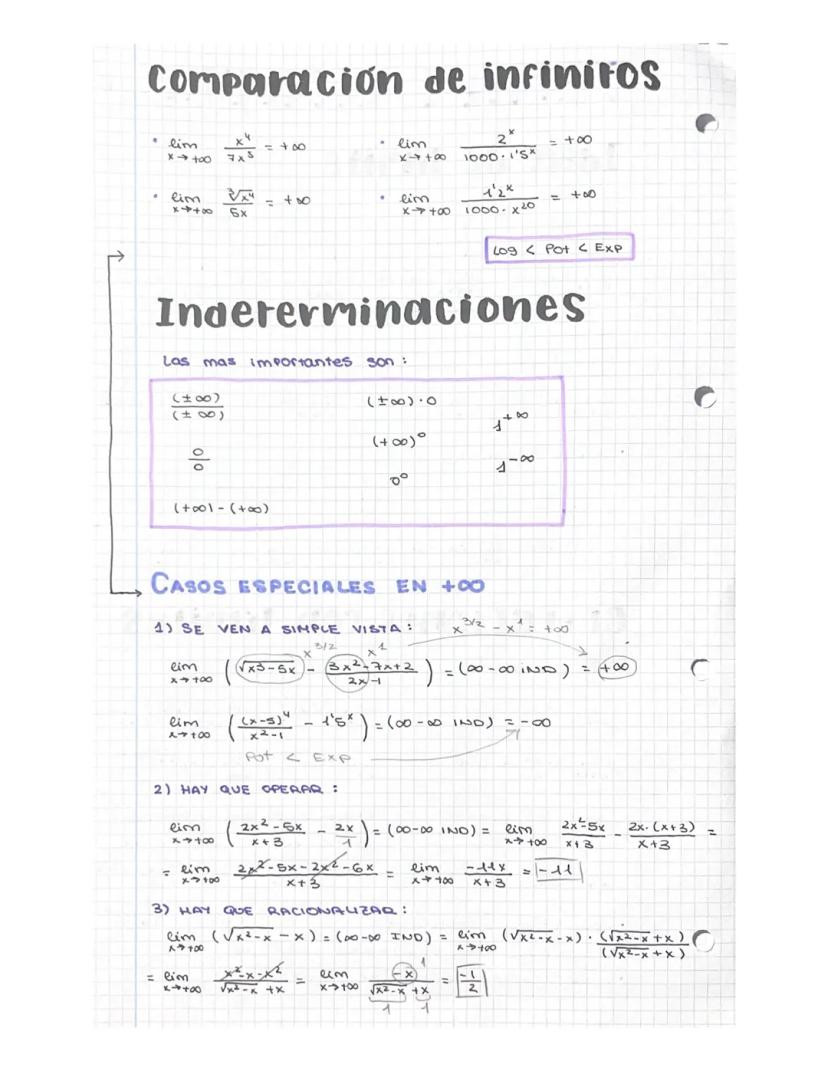 Comparación de infinitos
• lim x→+∞ x⁴/7x³ = +∞ • lim x→+∞ 2ˣ/1000·1'5ˣ = +∞
• lim x→+∞ ∛x⁴/5x = +∞ • lim x→+∞ 1'2ˣ/1000·x²⁰ = +∞
Log < Pot < Exp
Indeterminaciones
Las mas importantes son:
(±∞)/(±∞) (±∞)·0 1^+∞
0/0 (+∞)⁰ 1^-∞
0⁰
(+∞)-(+∞)
CASOS ESPECIALES EN +∞
1) SE VEN A SIMPLE VISTA: x^3/2 - x¹ = +∞
x^3/2 x¹
lim x→+∞ (√x³-5x - 3x²-7x+2/2x-1) = (∞-∞ IND) = +∞
lim x→+∞ ((x-5)⁴/x²-1 - 1'5ˣ) = (∞-∞ IND) = -∞
Pot < Exp
2) HAY QUE OPERAR:
lim x→+∞ (2x²-5x/x+3 - 2x/1) = (∞-∞ IND) = lim x→+∞ 2x²-5x/x+3 - 2x·(x+3)/x+3 =
= lim x→+∞ 2x²-5x-2x²-6x/x+3 = lim x→+∞ -11x/x+3 = -11
3) HAY QUE RACIONALIZAR:
lim x→+∞ (√x²-x - x) = (∞-∞ IND) = lim x→+∞ (√x²-x - x) · (√x²-x + x)/(√x²-x + x)
= lim x→+∞ x²-x-x²/√x²-x + x = lim x→+∞ -x/√x²-x + x = -1/2
1
1 1